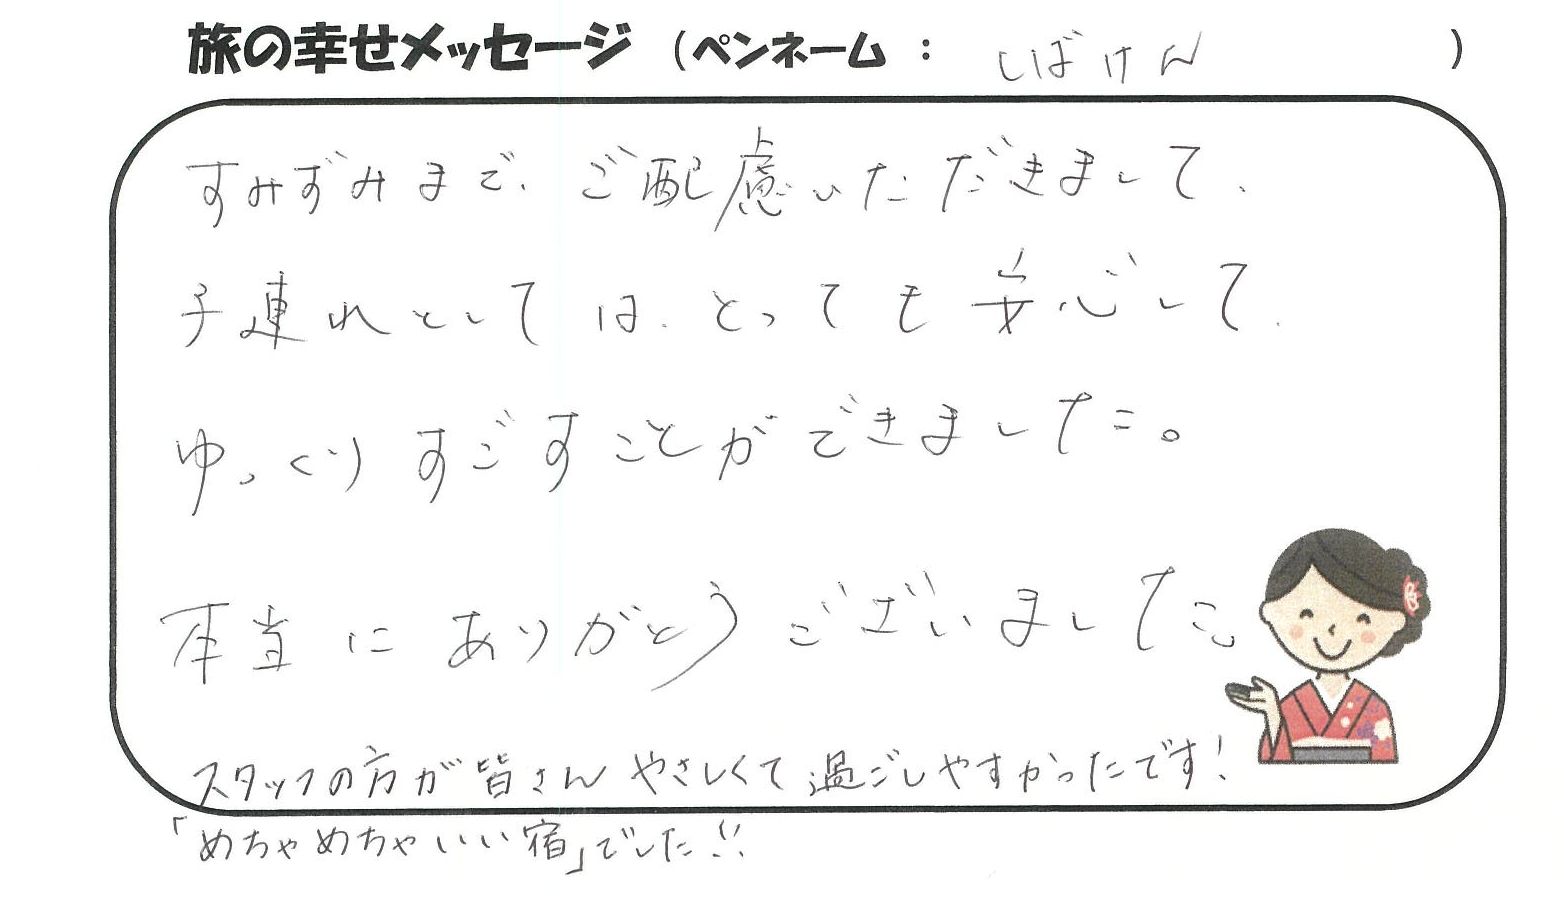 旅の幸せメッセージ (ペンネーム : しばけん )
すみずみまで、ご配慮いただきまして、
子連れとしては、とっても安心して、
ゆっくりすごすことができました。
本当にありがとうございました。
スタッフの方が皆さんやさしくて過ごしやすかったです!
「めちゃめちゃいい宿」でした!!